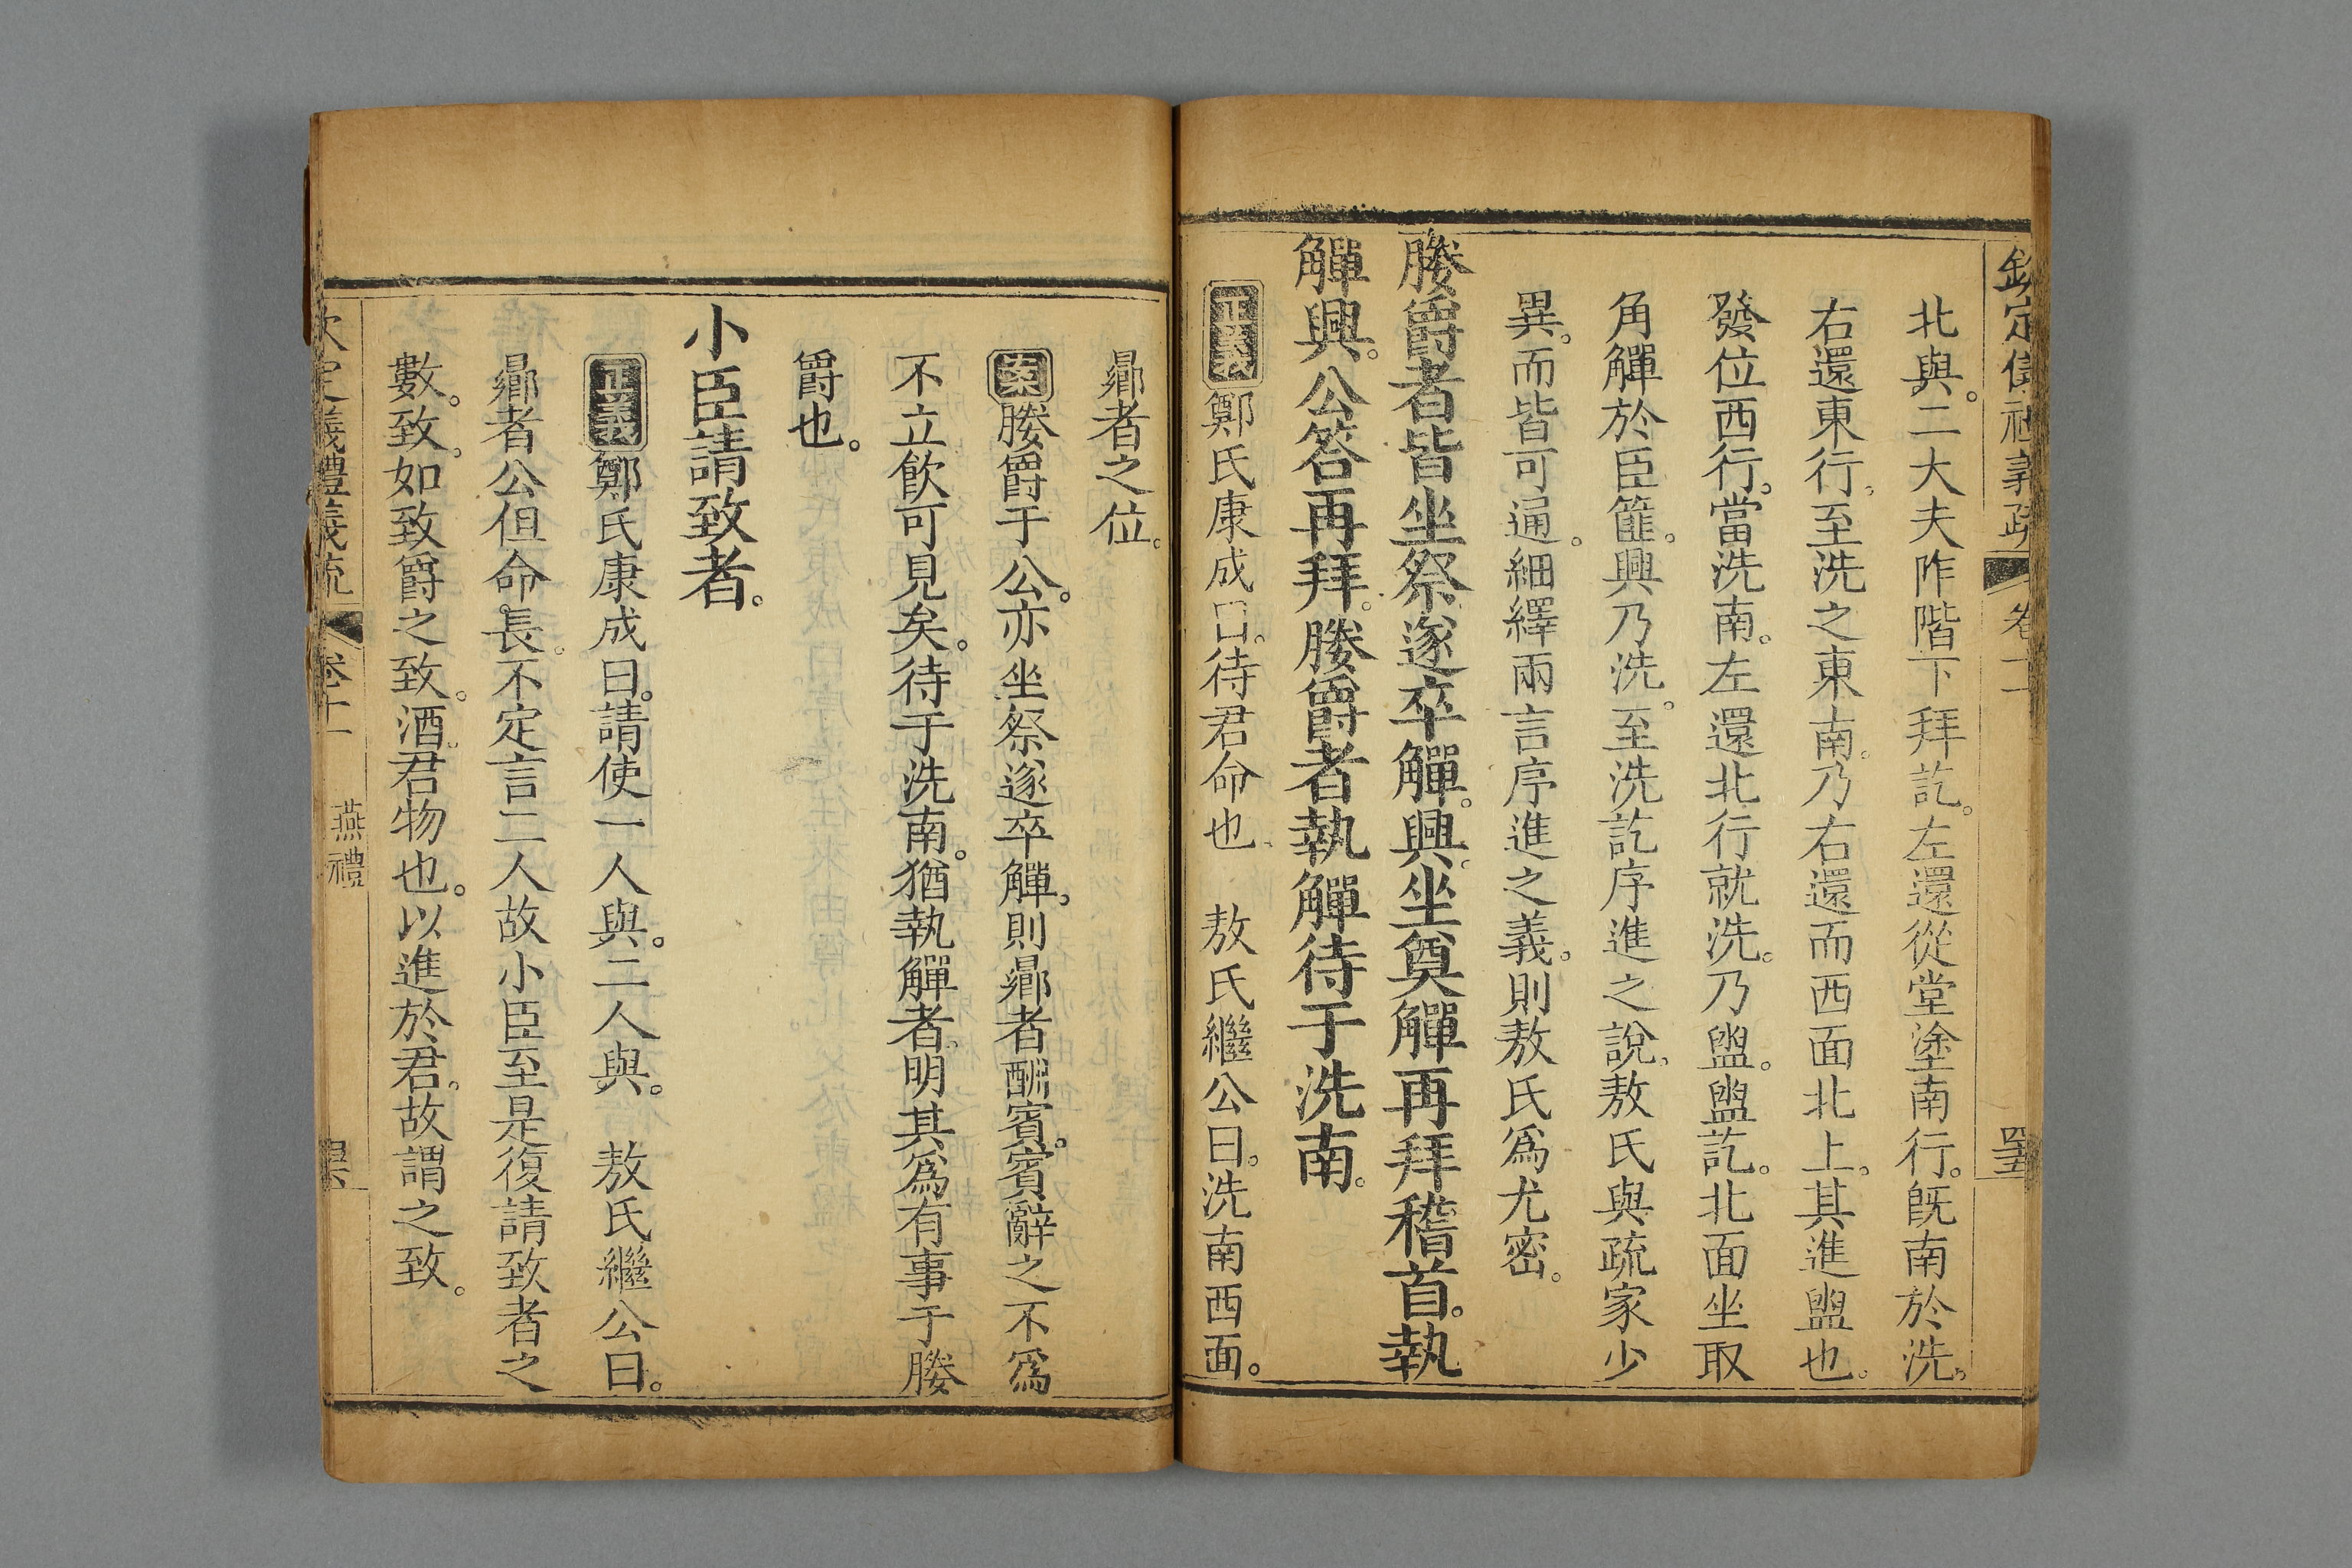 欽定儀禮義疏 卷十一
北與。二大夫阼階下拜訖。左還從堂塗南行。旣南於洗。
右還東行。至洗之東南。乃右還而西面北上。其進盥也。
發位西行。當洗南。左還北行就洗。乃盥。盥訖。北面坐取
角觶於臣篚。興乃洗。至洗訖序進之說。敖氏與疏家少
異。而皆可通。細繹兩言序進之義。則敖氏爲尤密。
媵爵者皆坐祭。遂卒觶。興。坐奠觶再拜稽首。執
觶興。公答再拜。媵爵者執觶待于洗南。
正義鄭氏康成曰。待君命也。 敖氏繼公曰。洗南西面。
曏者之位。
案媵爵于公。亦坐祭遂卒觶。則曏者酬賓。賓辭之不爲
不立飮可見矣。待于洗南。猶執觶者。明其爲有事于媵
爵也。
小臣請致者。
正義鄭氏康成曰。請使一人與。二人與。 敖氏繼公曰。
曏者公但命長。不定言二人故小臣至是復請致者之
數。致。如致爵之致。酒。君物也。以進於君。故謂之致。
欽定義禮義疏 卷十一 燕禮